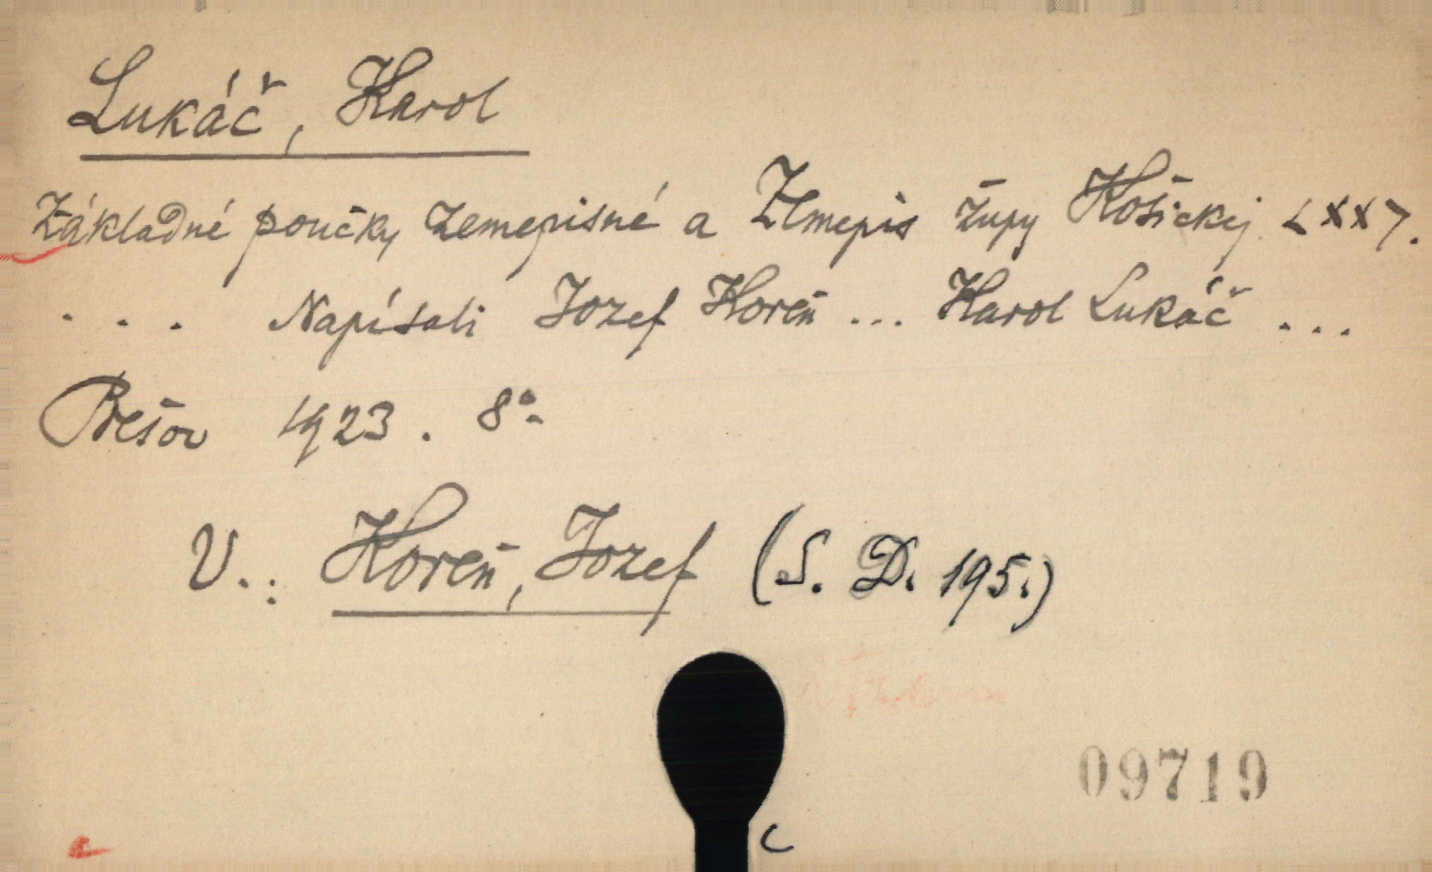 Lukáč, Karol
Základné poučky zemepisné a Zemepis župy Košickej. LXX7.
. . . Napísali Jozef Koreň ... Karol Lukáč ...
Prešov 1923. 8°.
V.: Koreň, Jozef (S. D. 195.)
09719
C